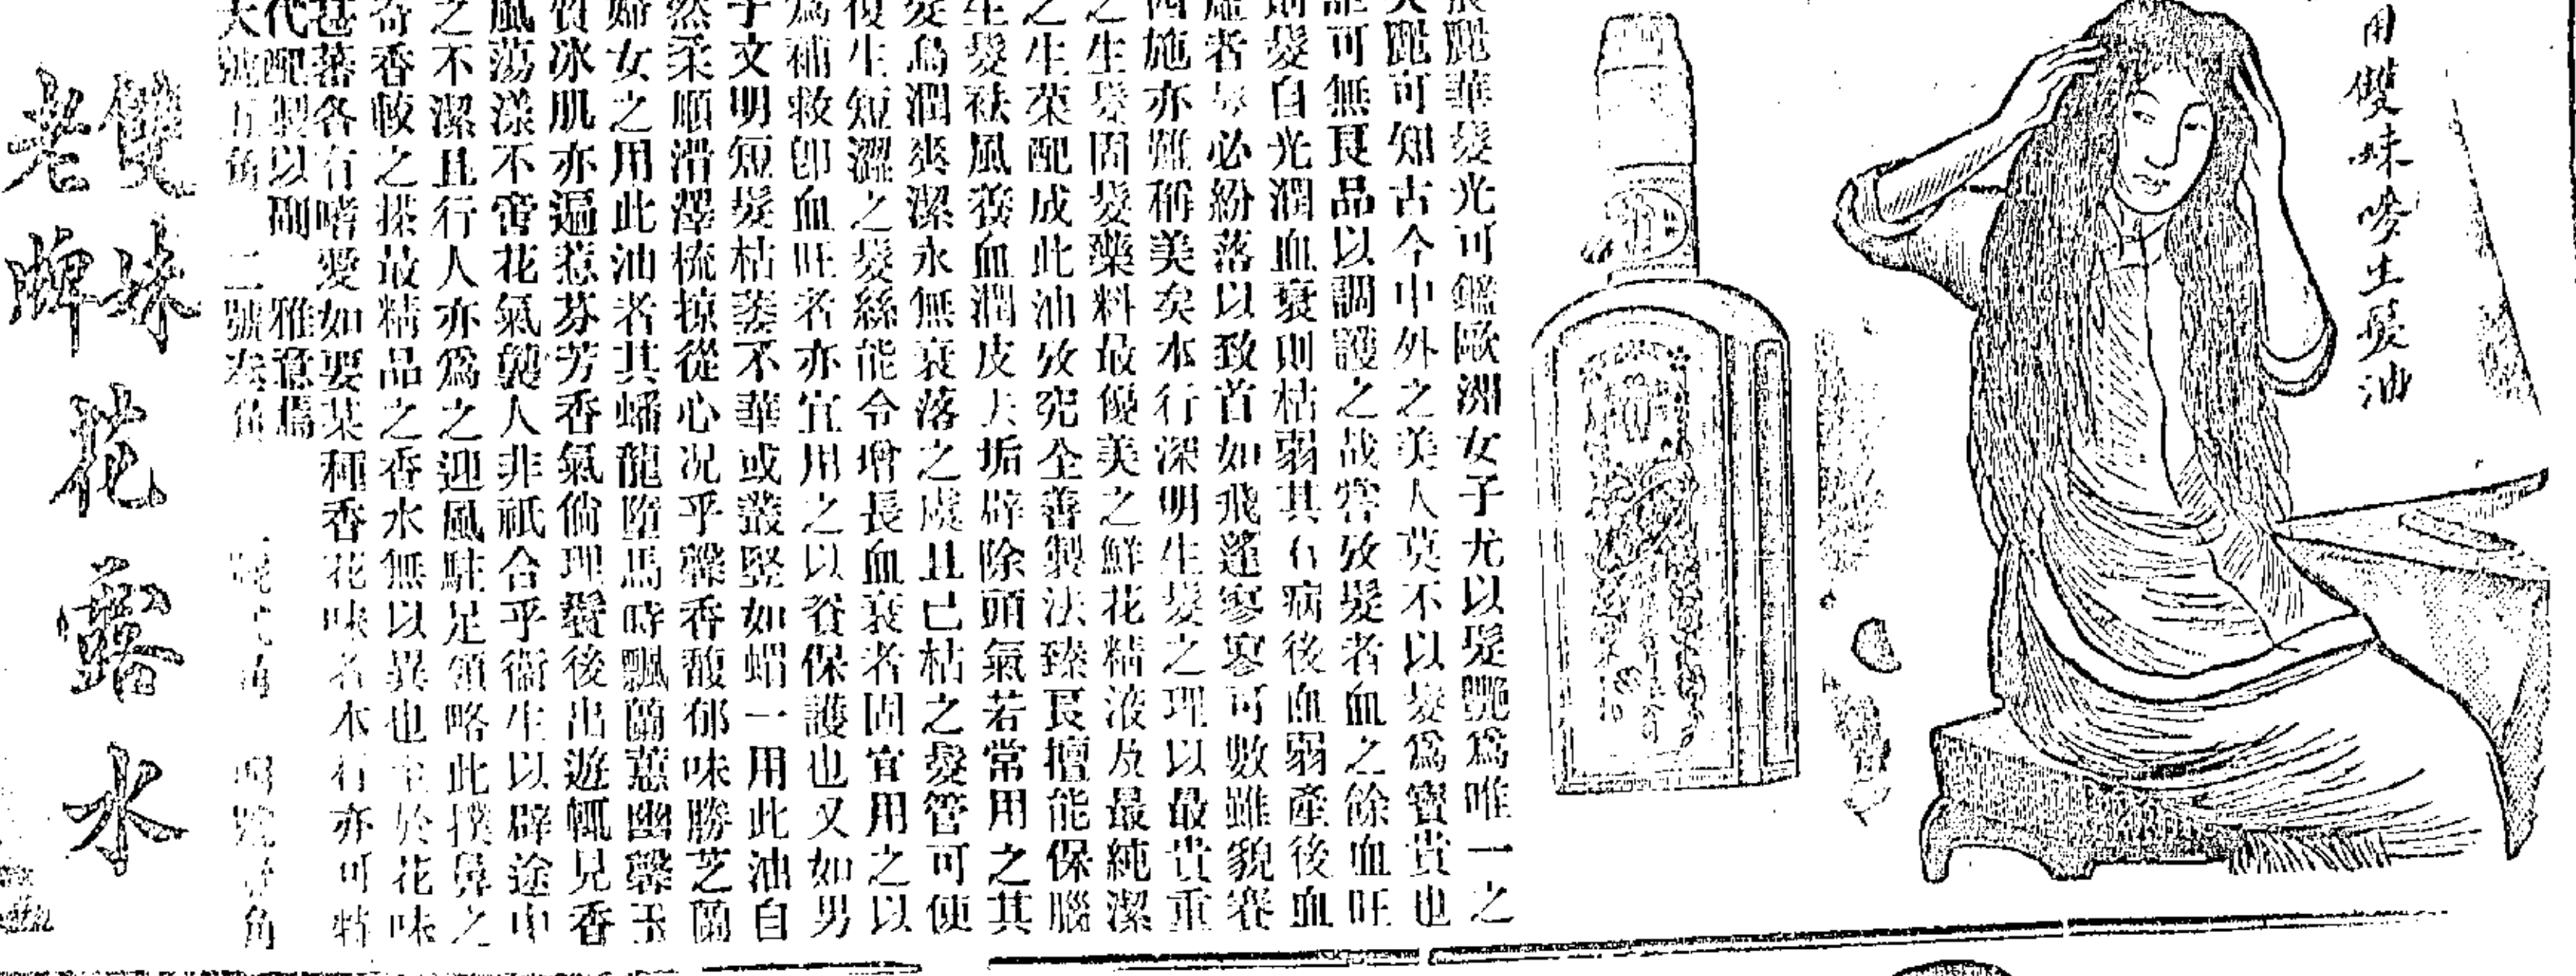 用雙妹嘜生髮油
麗華髮光可鑑歐洲女子尤以髮艷爲唯一之
美麗可知古今中外之美人莫不以髮爲寶貴也
可無良品以調護之哉嘗攷髮者血之餘血旺
則髮自光潤血衰則枯弱其有病後血弱產後血
虛者必紛落以致首如飛蓬寥寥可數雖貌賽
西施亦難稱美矣本行深明生髮之理以最貴重
之生髮固髮藥料最優美之鮮花精液及最純潔
之生菜配成此油攷究全善製法臻良擅能保腦
生髮祛風養血潤皮去垢辟除頭氣若常用之其
髮烏潤爽潔永無衰落之虞且已枯之髮管可使
復生短澀之髮絲能令增長血衰者固宜用之以
爲補救卽血旺者亦宜用之以養保護也又如男
子文明短髮枯萎不華或叢竪如蝟一用此油自
然柔順滑澤梳掠從心况乎馨香馥郁味勝芝蘭
婦女之用此油者其蟠龍墮馬時飄蘭蕙幽馨玉
質冰肌亦遍惹芬芳香氣倘理鬢後出遊輒見香
風蕩漾不啻花氣襲人非祇合乎衛生以辟途中
之不潔且行人亦爲之迎風駐足領略此撲鼻之
奇香較之採最精品之香水無以異也至於花味
甚蕃各有嗜愛如要某種香花味者本行亦可特
代配製以副 雅意焉
大號五角 二號叁角
雙妹
老牌
花露水